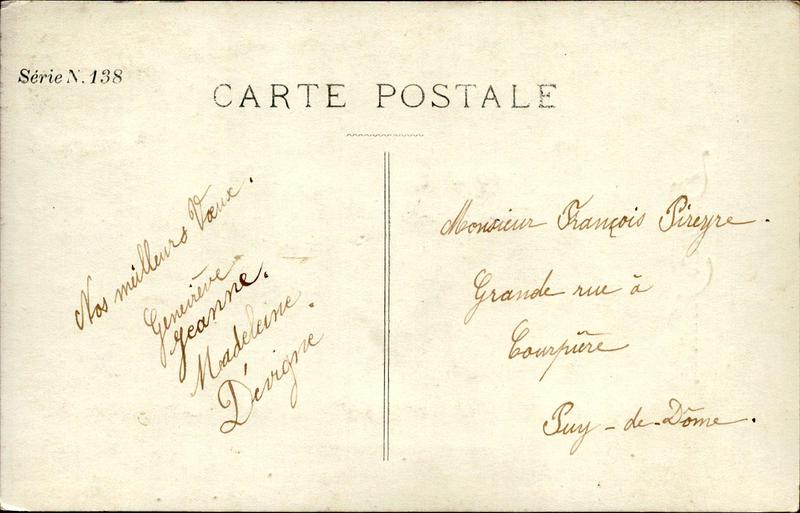 Série N. 138
CARTE POSTALE
Nos meilleurs Vœux.
Geneviève
Jeanne.
Madeleine.
Dévigne
Monsieur François Pireyre.
Grande rue à
Courpière
Puy-de-Dôme.